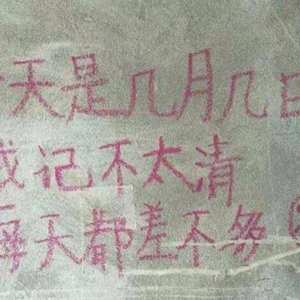 今天是几月几日
我记不太清
每天都差不多